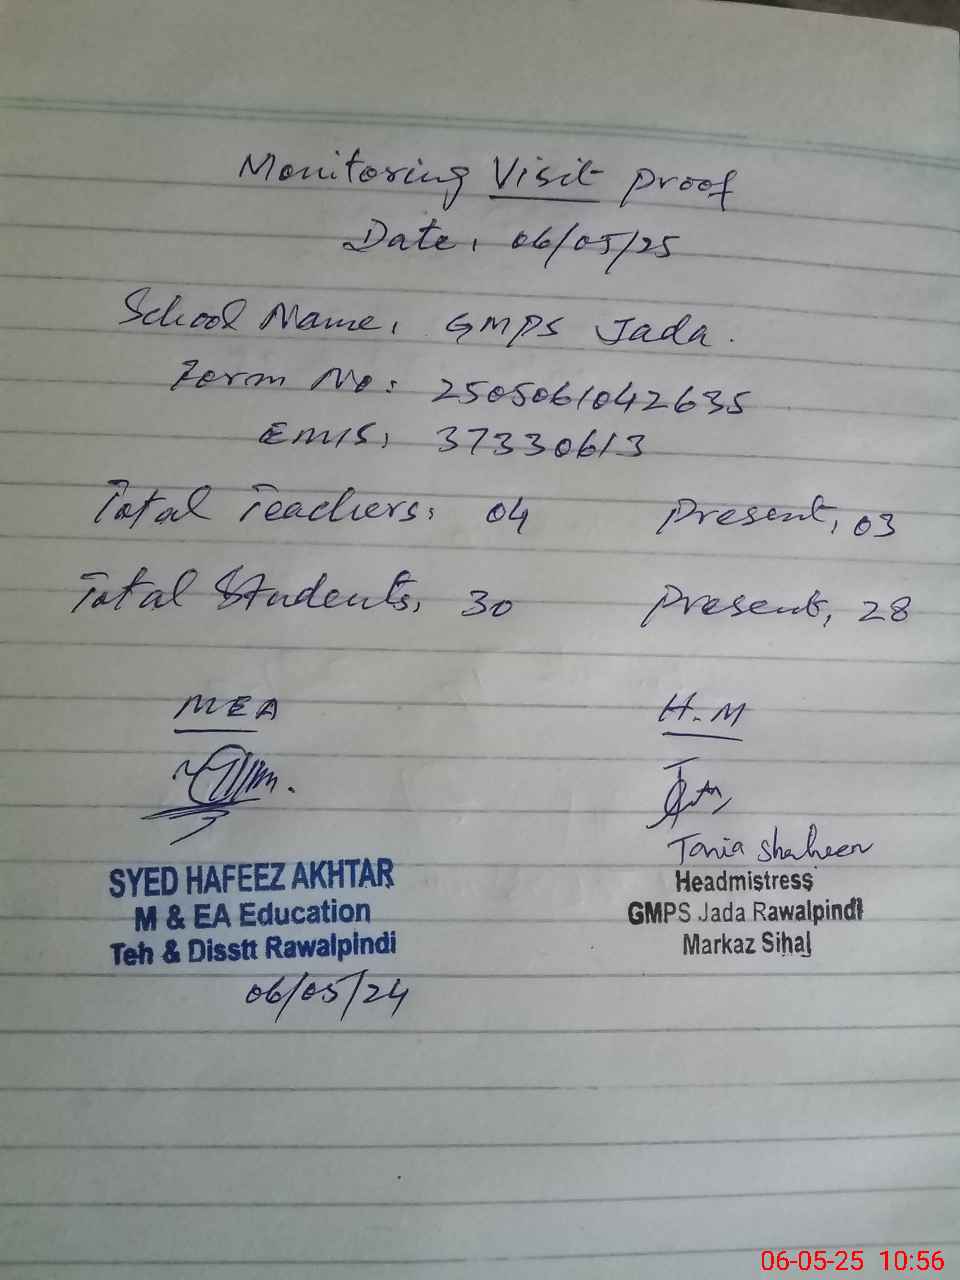 Monitoring Visit Proof
Date: 06/05/25
School Name: GMPS Jada.
Form No: 2505061042635
EMIS: 37330613
Total Teachers: 04 Present: 03
Total Students: 30 Present: 28
MEA H.M
Tania Shaheen
SYED HAFEEZ AKHTAR Headmistress
M & EA Education GMPS Jada Rawalpindi
Teh & Disstt Rawalpindi Markaz Sihal
06/05/24
06-05-25 10:56